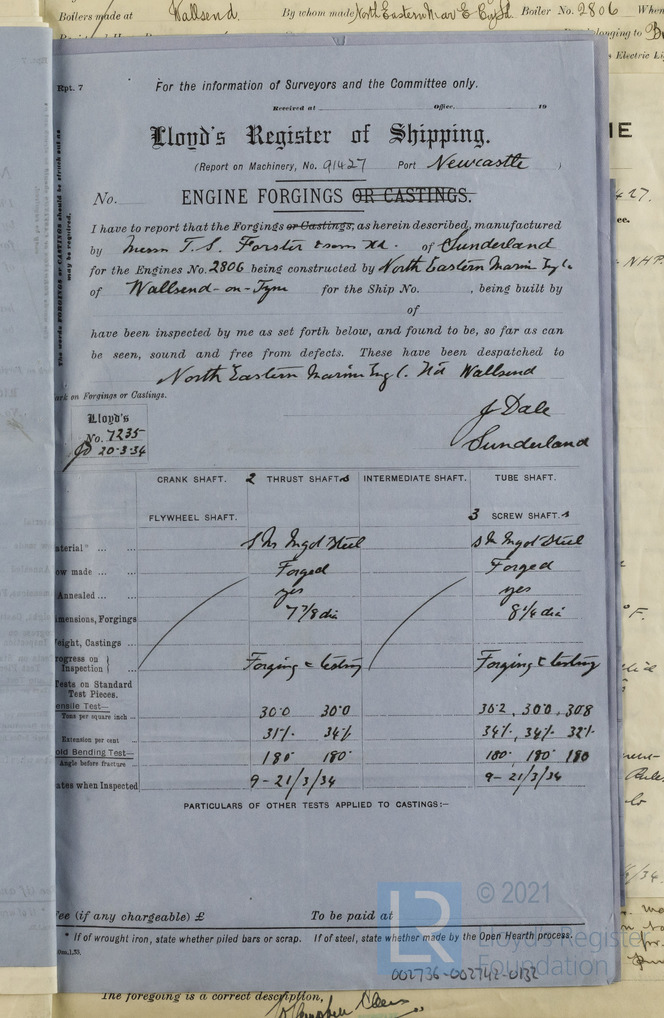 Boilers made at Wallsend. By whom made North Eastern Mar E Co Ld. Boiler No. 2806 When
longing to
Electric Li
Rpt. 7
For the information of Surveyors and the Committee only.
Received at Office, 19
Lloyd's Register of Shipping.
(Report on Machinery, No. 91427 Port Newcastle )
No. ENGINE FORGINGS OR CASTINGS.
The words FORGINGS or CASTINGS should be struck out as may be required.
I have to report that the Forgings or Castings, as herein described, manufactured
by Messrs T. S. Forster & Sons Ltd. of Sunderland
for the Engines No. 2806 being constructed by North Eastern Marine Eng Co
of Wallsend-on-Tyne for the Ship No. , being built by
of
have been inspected by me as set forth below, and found to be, so far as can
be seen, sound and free from defects. These have been despatched to
North Eastern Marine Eng C. Ltd Wallsend
ark on Forgings or Castings.
Lloyd's
No. 7235
JD 20·3·34
J Dale
Sunderland
CRANK SHAFT. 2 THRUST SHAFTs INTERMEDIATE SHAFT. TUBE SHAFT.
FLYWHEEL SHAFT. 3 SCREW SHAFT.s
aterial* ... ... S M Ingot Steel S M Ingot Steel
ow made ... ... Forged Forged
Annealed ... ... yes yes
imensions, Forgings 7 7/8 dia 8 1/4 dia
eight, Castings ...
rogress on Inspection } ... Forging & testing Forging & testing
Tests on Standard
Test Pieces.
ensile Test—
Tons per square inch ... 30·0 30·0 30·2, 30·0, 30·8
Extension per cent ... 31% 34% 34%, 34% 32%
old Bending Test—
Angle before fracture 180° 180° 180° 180° 180
ates when Inspected 9-21/3/34 9-21/3/34
PARTICULARS OF OTHER TESTS APPLIED TO CASTINGS:—
Fee (if any chargeable) £ To be paid at
* If of wrought iron, state whether piled bars or scrap. If of steel, state whether made by the Open Hearth process.
LR © 2021
Lloyd's Register
Foundation
002736-002742-0132
The foregoing is a correct description,